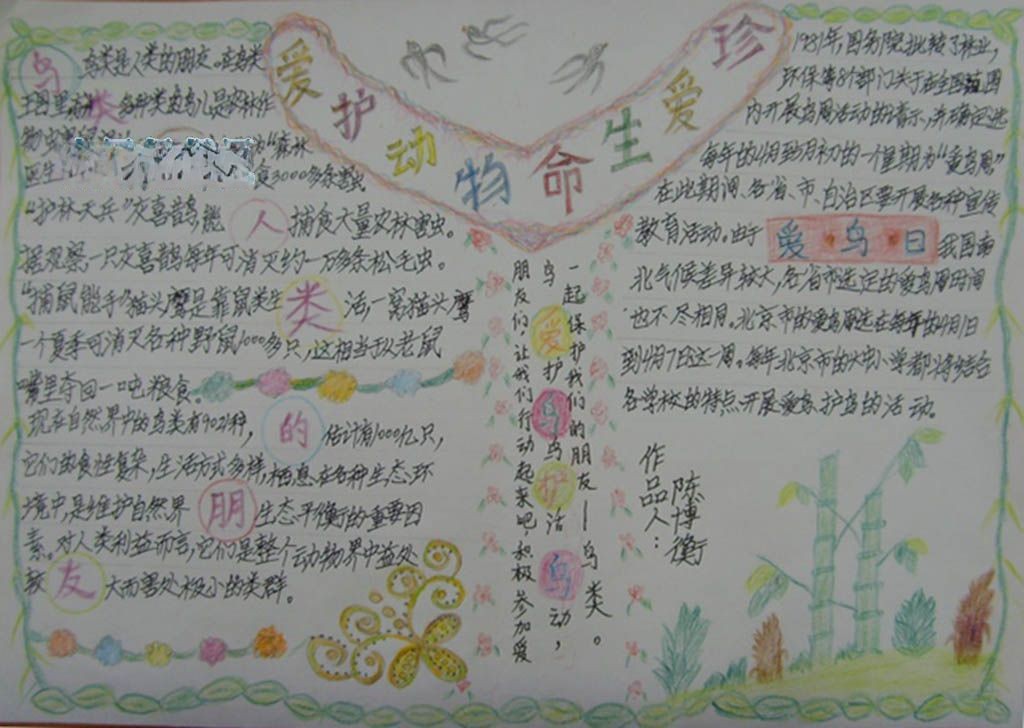 爱护动物命生爱珍
鸟类是人类的朋友。在鸟类
王国里
物虫
医生 食3000多条害虫。
“护林天兵”灰喜鹊,能 捕食大量农林害虫。
据观察一只灰喜鹊每年可消灭约一万多条松毛虫。
“捕鼠能手”猫头鹰是靠鼠类生活,一窝猫头鹰
一个夏季可消灭各种野鼠1000多只,这相当于从老鼠
嘴里夺回一吨粮食。
现在自然界中的鸟类有9021种, 估计有1000亿只,
它们的食性复杂,生活方式多样,栖息在各种生态环
境中,是维护自然界 生态平衡的重要因
素。对人类利益而言,它们是整个动物界中益处
较 大而害处极小的类群。
鸟
类
人
类
的
朋
友
一起保护我们的朋友—鸟类。
鸟,爱护鸟鸟护活鸟动,
朋友们,让我们行动起来吧,积极参加爱
1981年,国务院批转了林业,
环保等8个部门关于在全国范围
内开展鸟周活动的请示,并确定选
每年的4月到5月初的一个星期为“爱鸟周”
在此期间,各省、市、自治区要开展各种宣传
教育活动。由于 爱鸟日 我国南
北气候差异较大,各省市选定的爱鸟周时间
也不尽相同。北京市的爱鸟周选在每年的4月1日
到4月7日这一周。每年北京市的大中小学都将结合
各学校的特点开展爱鸟、护鸟的活动。
作品人:
陈博衡